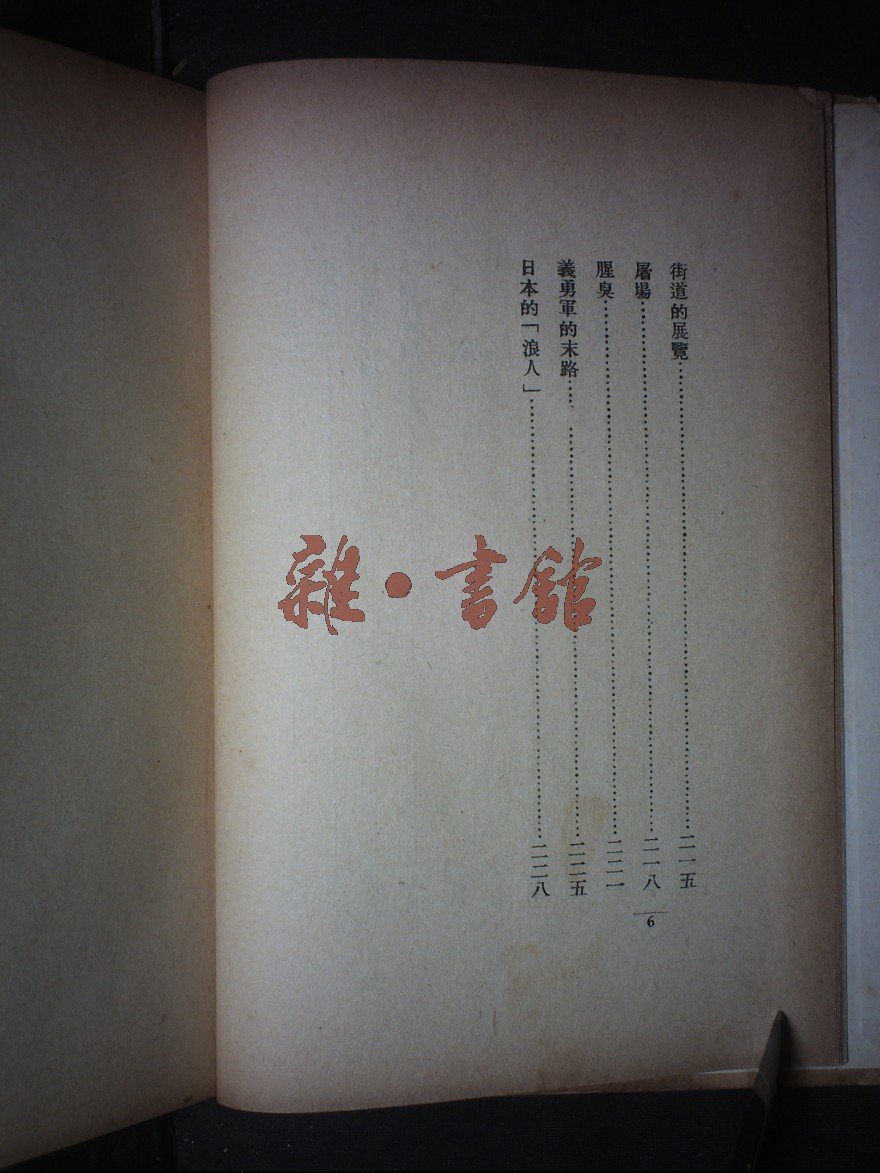 街道的展覽……二一五
屠場……二一八
腥臭……二二一
義勇軍的末路……二二五
日本的「浪人」……二二八
6
雜·書館